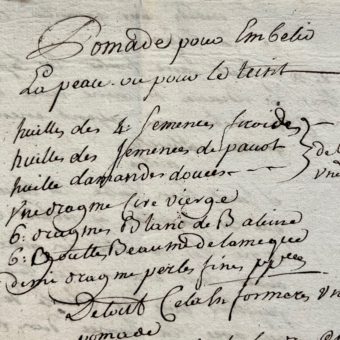 Pomade pour Embelir
La peau ou pour le teint
huilles des 4 semences froides
huilles des semences de pavot
huille damandes douces
de
vne dragme cire vierge
6: dragmes Blanc de Baleine
6: Goutles Beaume de lameque
demi dragme perles fines ppées
De tout Cela En formeres vn
pomade